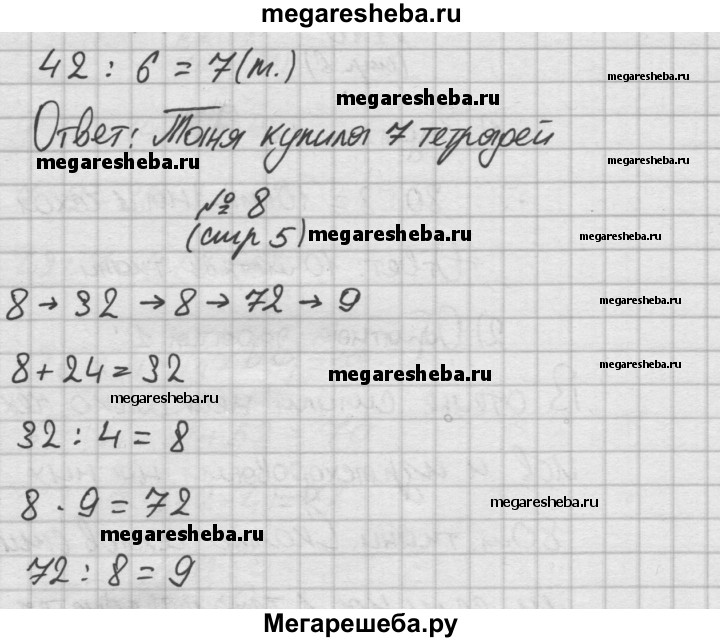 megaresheba.ru
42 : 6 = 7(т.)
megaresheba.ru
megaresheba.ru
Ответ: Таня купила 7 тетрадей
megaresheba.ru
megaresheba.ru
№ 8
(стр 5)
megaresheba.ru
megaresheba.ru
8 → 32 → 8 → 72 → 9
megaresheba.ru
8 + 24 = 32
megaresheba.ru
megaresheba.ru
megaresheba.ru
32 : 4 = 8
8 · 9 = 72
megaresheba.ru
megaresheba.ru
72 : 8 = 9
Мегарешеба.ру